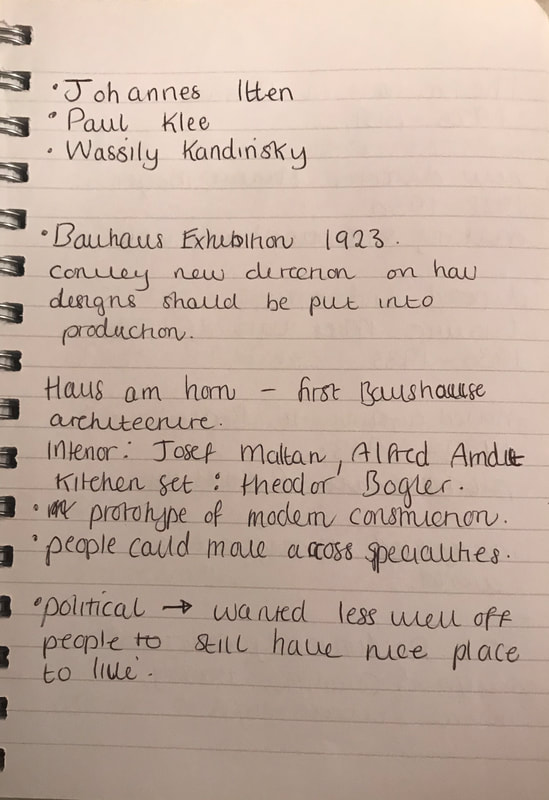 • Johannes Itten
• Paul Klee
• Wassily Kandinsky
• Bauhaus Exhibition 1923.
convey new direction on how
designs should be put into
production.
Haus am horn - first Baushause
architecture.
Interior: Josef Maltan, Alfred Arndt
Kitchen set : theodor Bogler.
• prototype of modern construction.
• people could move across specialities.
• political → wanted less well off
people to still have nice place
to live.